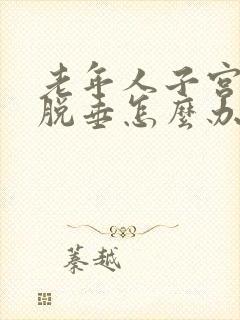 老年人子宫
脱垂怎麽办
蓁越